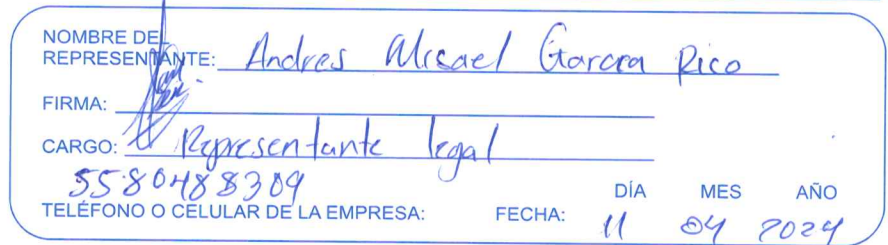 NOMBRE DEL
REPRESENTANTE: Andres Misael Garcia Rico
FIRMA:
CARGO: Representante legal
5580488309
DÍA MES AÑO
TELÉFONO O CELULAR DE LA EMPRESA: FECHA: 11 04 2024